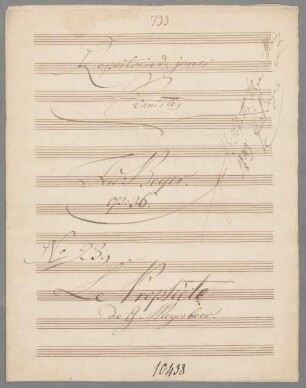 733
Repertoire des jeunes
Pianistes
Ferd. Beyer.
op. 36.
No. 23.
Le Prophète
de G. Meyerbeer.
10438